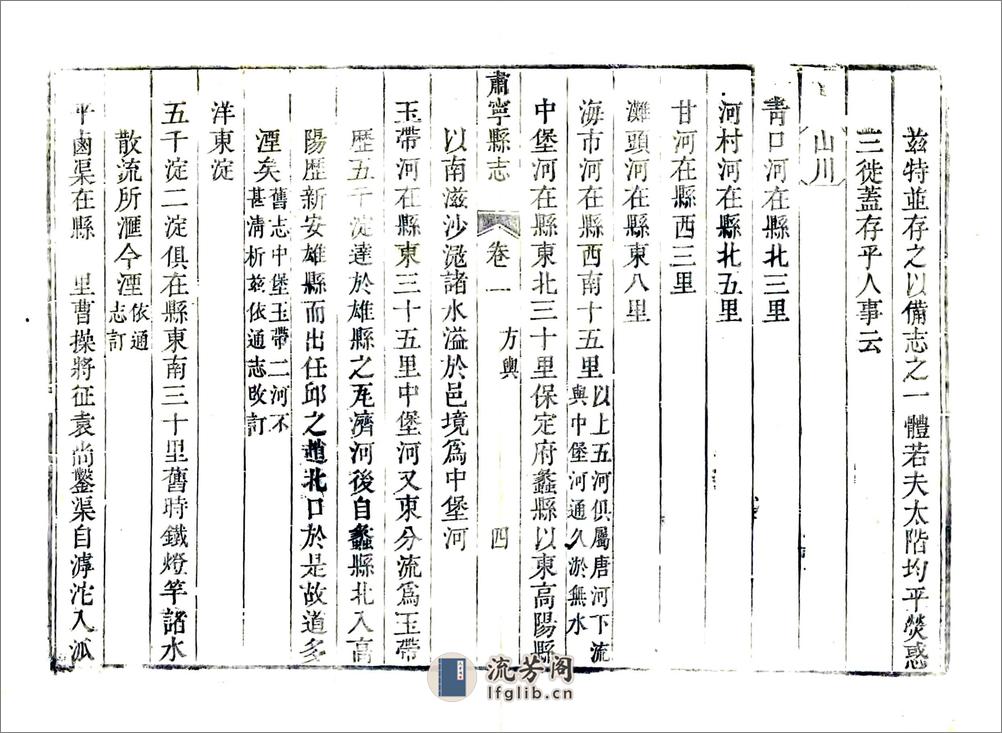 茲特並存之以備志之一體若夫太階均平熒惑
三徙蓋存乎人事云
山川
青口河在縣北三里
河村河在縣北五里
甘河在縣西三里
灘頭河在縣東八里
海市河在縣西南十五里以上五河俱屬唐河下流
與中堡河通久淤無水
中堡河在縣東北三十里保定府蠡縣以東高陽縣
肅寧縣志
卷一
方輿
四
以南滋沙滱諸水溢於邑境爲中堡河
玉帶河在縣東三十五里中堡河又東分流爲玉帶
歷五千淀達於雄縣之瓦濟河後自蠡縣北入高
陽歷新安雄縣而出任邱之趙北口於是故道多
湮矣舊志中堡玉帶二河不
甚清析茲依通志改訂
洋東淀
五千淀二淀俱在縣東南三十里舊時鐵燈竿諸水
散流所滙今湮依通
志訂
平鹵渠在縣 里曹操將征袁尚鑿渠自滹沱入泒
流芳阁
lfglib.cn